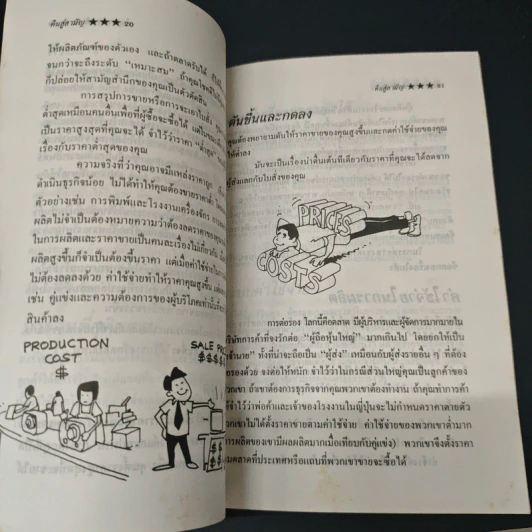 คืนสู่สามัญ ★★★ 20
ให้ผลิตภัณฑ์ของตัวเอง และถ้าตลาดรับได้
จนกว่าจะถึงระดับ "เหมาะสม" ถ้าคุณโชคดี
ก็ปล่อยให้สามัญสำนึกของคุณเป็นตัวตัดสิน
การสรุปการขายหรือการจะเอาใบสั่ง
ต่ำสุดเหมือนคนอื่นเพื่อที่ผู้ซื้อจะซื้อได้
เป็นราคาสูงสุดที่คุณจะได้ จำไว้ว่าราคา "ต่ำสุด"
เรื่องกับราคาต่ำสุดของคุณ
ความจริงที่ว่าคุณอาจมีแหล่งราคาถูก
ดำเนินธุรกิจน้อย ไม่ได้ทำให้คุณต้องขายราคาต่ำ
ตัวอย่างเช่น การพิมพ์และโรงงานเครื่องจักร
ผลิตไม่จำเป็นต้องหมายความว่าต้องลดราคาของคุณ
ในการผลิตและราคาขายเป็นคนละเรื่องไม่เกี่ยวกัน
ผลิตสูงขึ้นก็จำเป็นต้องขึ้นราคา แต่เมื่อค่าใช้จ่าย
ไม่ต้องลดลงด้วย ค่าใช้จ่ายทำให้ราคาคุณสูงขึ้น
เช่น คู่แข่งและความต้องการของผู้บริโภคเท่านั้น
สินค้าลง
PRODUCTION
COST
$
SALE
$$$$
คืนสู่สามัญ ★★★ 21
ดันขึ้นและกดลง
คุณต้องพยายามดันให้ราคาขายของคุณสูงขึ้นและกดค่าใช้จ่ายของคุณ
ให้ต่ำลง
มันจะเป็นเรื่องน่าตื่นเต้นทีเดียวกับราคาที่คุณจะได้ลดจาก
ผู้ส่งแลกกับใบสั่งของคุณ
PRICES
COSTS
การต่อรอง โลกนี้คือตลาด มีผู้บริหารและผู้จัดการมากมายใน
บริษัทการค้าที่จงรักต่อ "ผู้ถือหุ้นใหญ่" มากเกินไป โดยยกให้เป็น
"เจ้านาย" ทั้งที่น่าจะถือเป็น "ผู้ส่ง" เหมือนกับผู้ส่งรายอื่น ๆ ที่ต้อง
ต่อรองด้วย จงต่อให้หนัก จำไว้ว่าในกรณีส่วนใหญ่คุณเป็นลูกค้าของ
พวกเขา ถ้าเขาต้องการธุรกิจจากคุณพวกเขาต้องทำงาน ถ้าคุณทำการค้า
จำไว้ว่าพ่อค้าและเจ้าของโรงงานในญี่ปุ่นจะไม่กำหนดราคาตายตัว
พวกเขาไม่ได้ตั้งราคาขายตามค่าใช้จ่าย ค่าใช้จ่ายของพวกเขาต่ำมาก
การผลิตของเขามีผลผลิตมากเมื่อเทียบกับคู่แข่ง) พวกเขาจึงตั้งราคา
ตามตลาดที่ประเทศหรือแถบที่พวกเขาขายจะซื้อได้